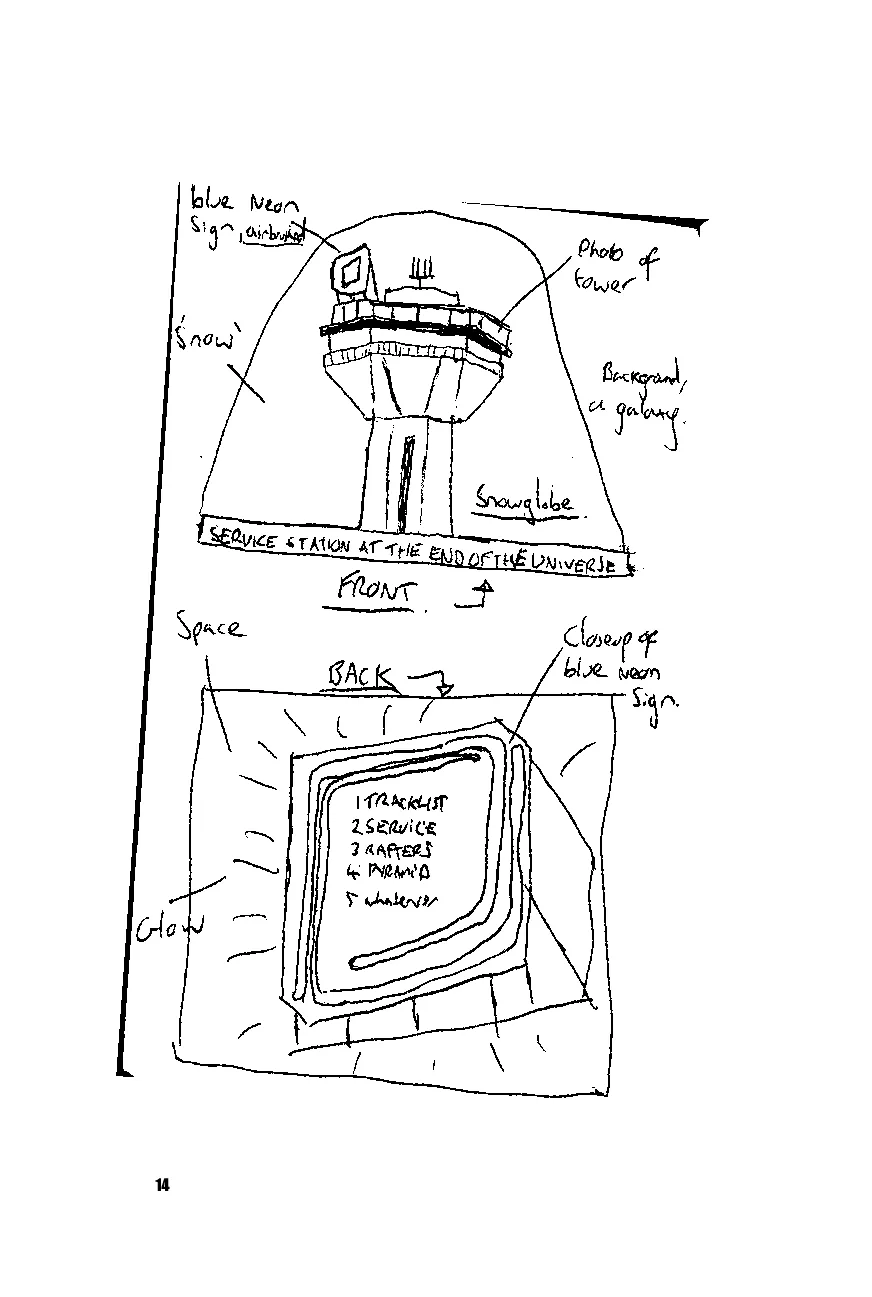 blue neon
Sign, airbrushed
Photo of
tower
'Snow'
Background,
a galaxy.
Snowglobe
SERVICE STATION AT THE END OF THE UNIVERSE
FRONT
Space
Closeup of
blue neon
Sign.
BACK
1 TRACKLIST
2 SERVICE
3 RAFTERS
4 PYRAMID
5 whatever
Glow
14